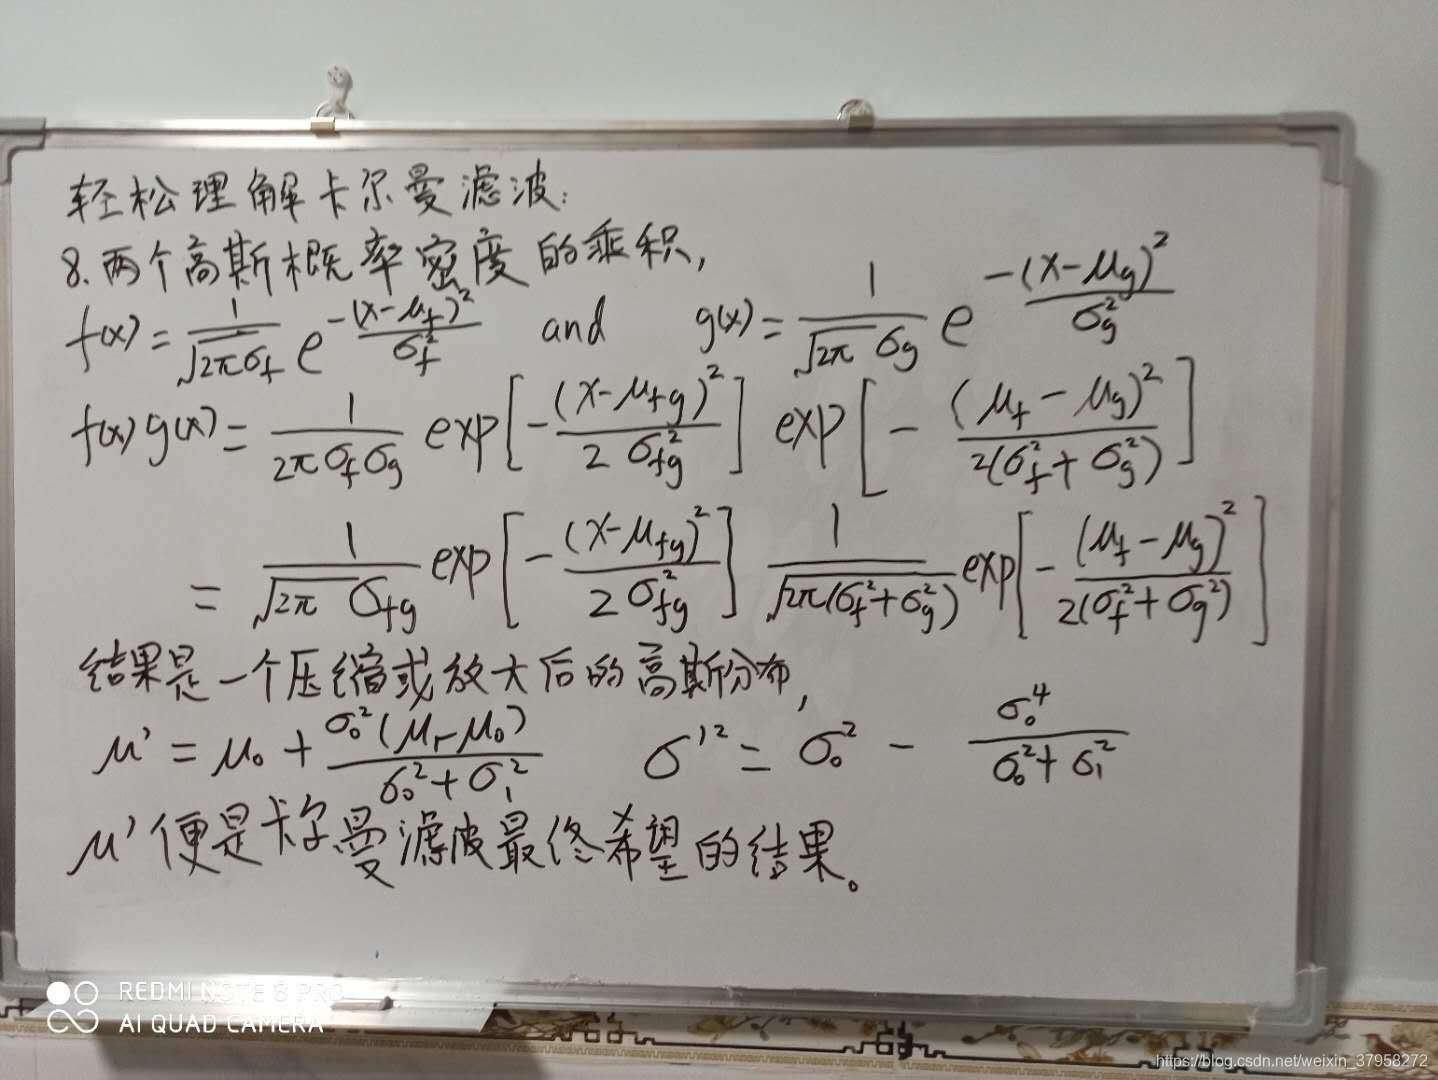 轻松理解卡尔曼滤波:
8.两个高斯概率密度的乘积,
f(x) = \frac{1}{\sqrt{2π}σ_f} e^{-\frac{(x-μ_f)^2}{σ_f^2}} and g(x) = \frac{1}{\sqrt{2π}σ_g} e^{-\frac{(x-μ_g)^2}{σ_g^2}}
f(x)g(x) = \frac{1}{2πσ_fσ_g} exp[-\frac{(x-μ_{fg})^2}{2σ_{fg}^2}] exp[-\frac{(μ_f-μ_g)^2}{2(σ_f^2+σ_g^2)}]
= \frac{1}{\sqrt{2π}σ_{fg}} exp[-\frac{(x-μ_{fg})^2}{2σ_{fg}^2}] \frac{1}{\sqrt{2π(σ_f^2+σ_g^2)}} exp[-\frac{(μ_f-μ_g)^2}{2(σ_f^2+σ_g^2)}]
结果是一个压缩或放大后的高斯分布,
μ' = μ_0 + \frac{σ_0^2(μ_1-μ_0)}{σ_0^2+σ_1^2} σ'^2 = σ_0^2 - \frac{σ_0^4}{σ_0^2+σ_1^2}
μ'便是卡尔曼滤波最终希望的结果。
REDMI NOTE 8 PRO
AI QUAD CAMERA
https://blog.csdn.net/weixin_37958272